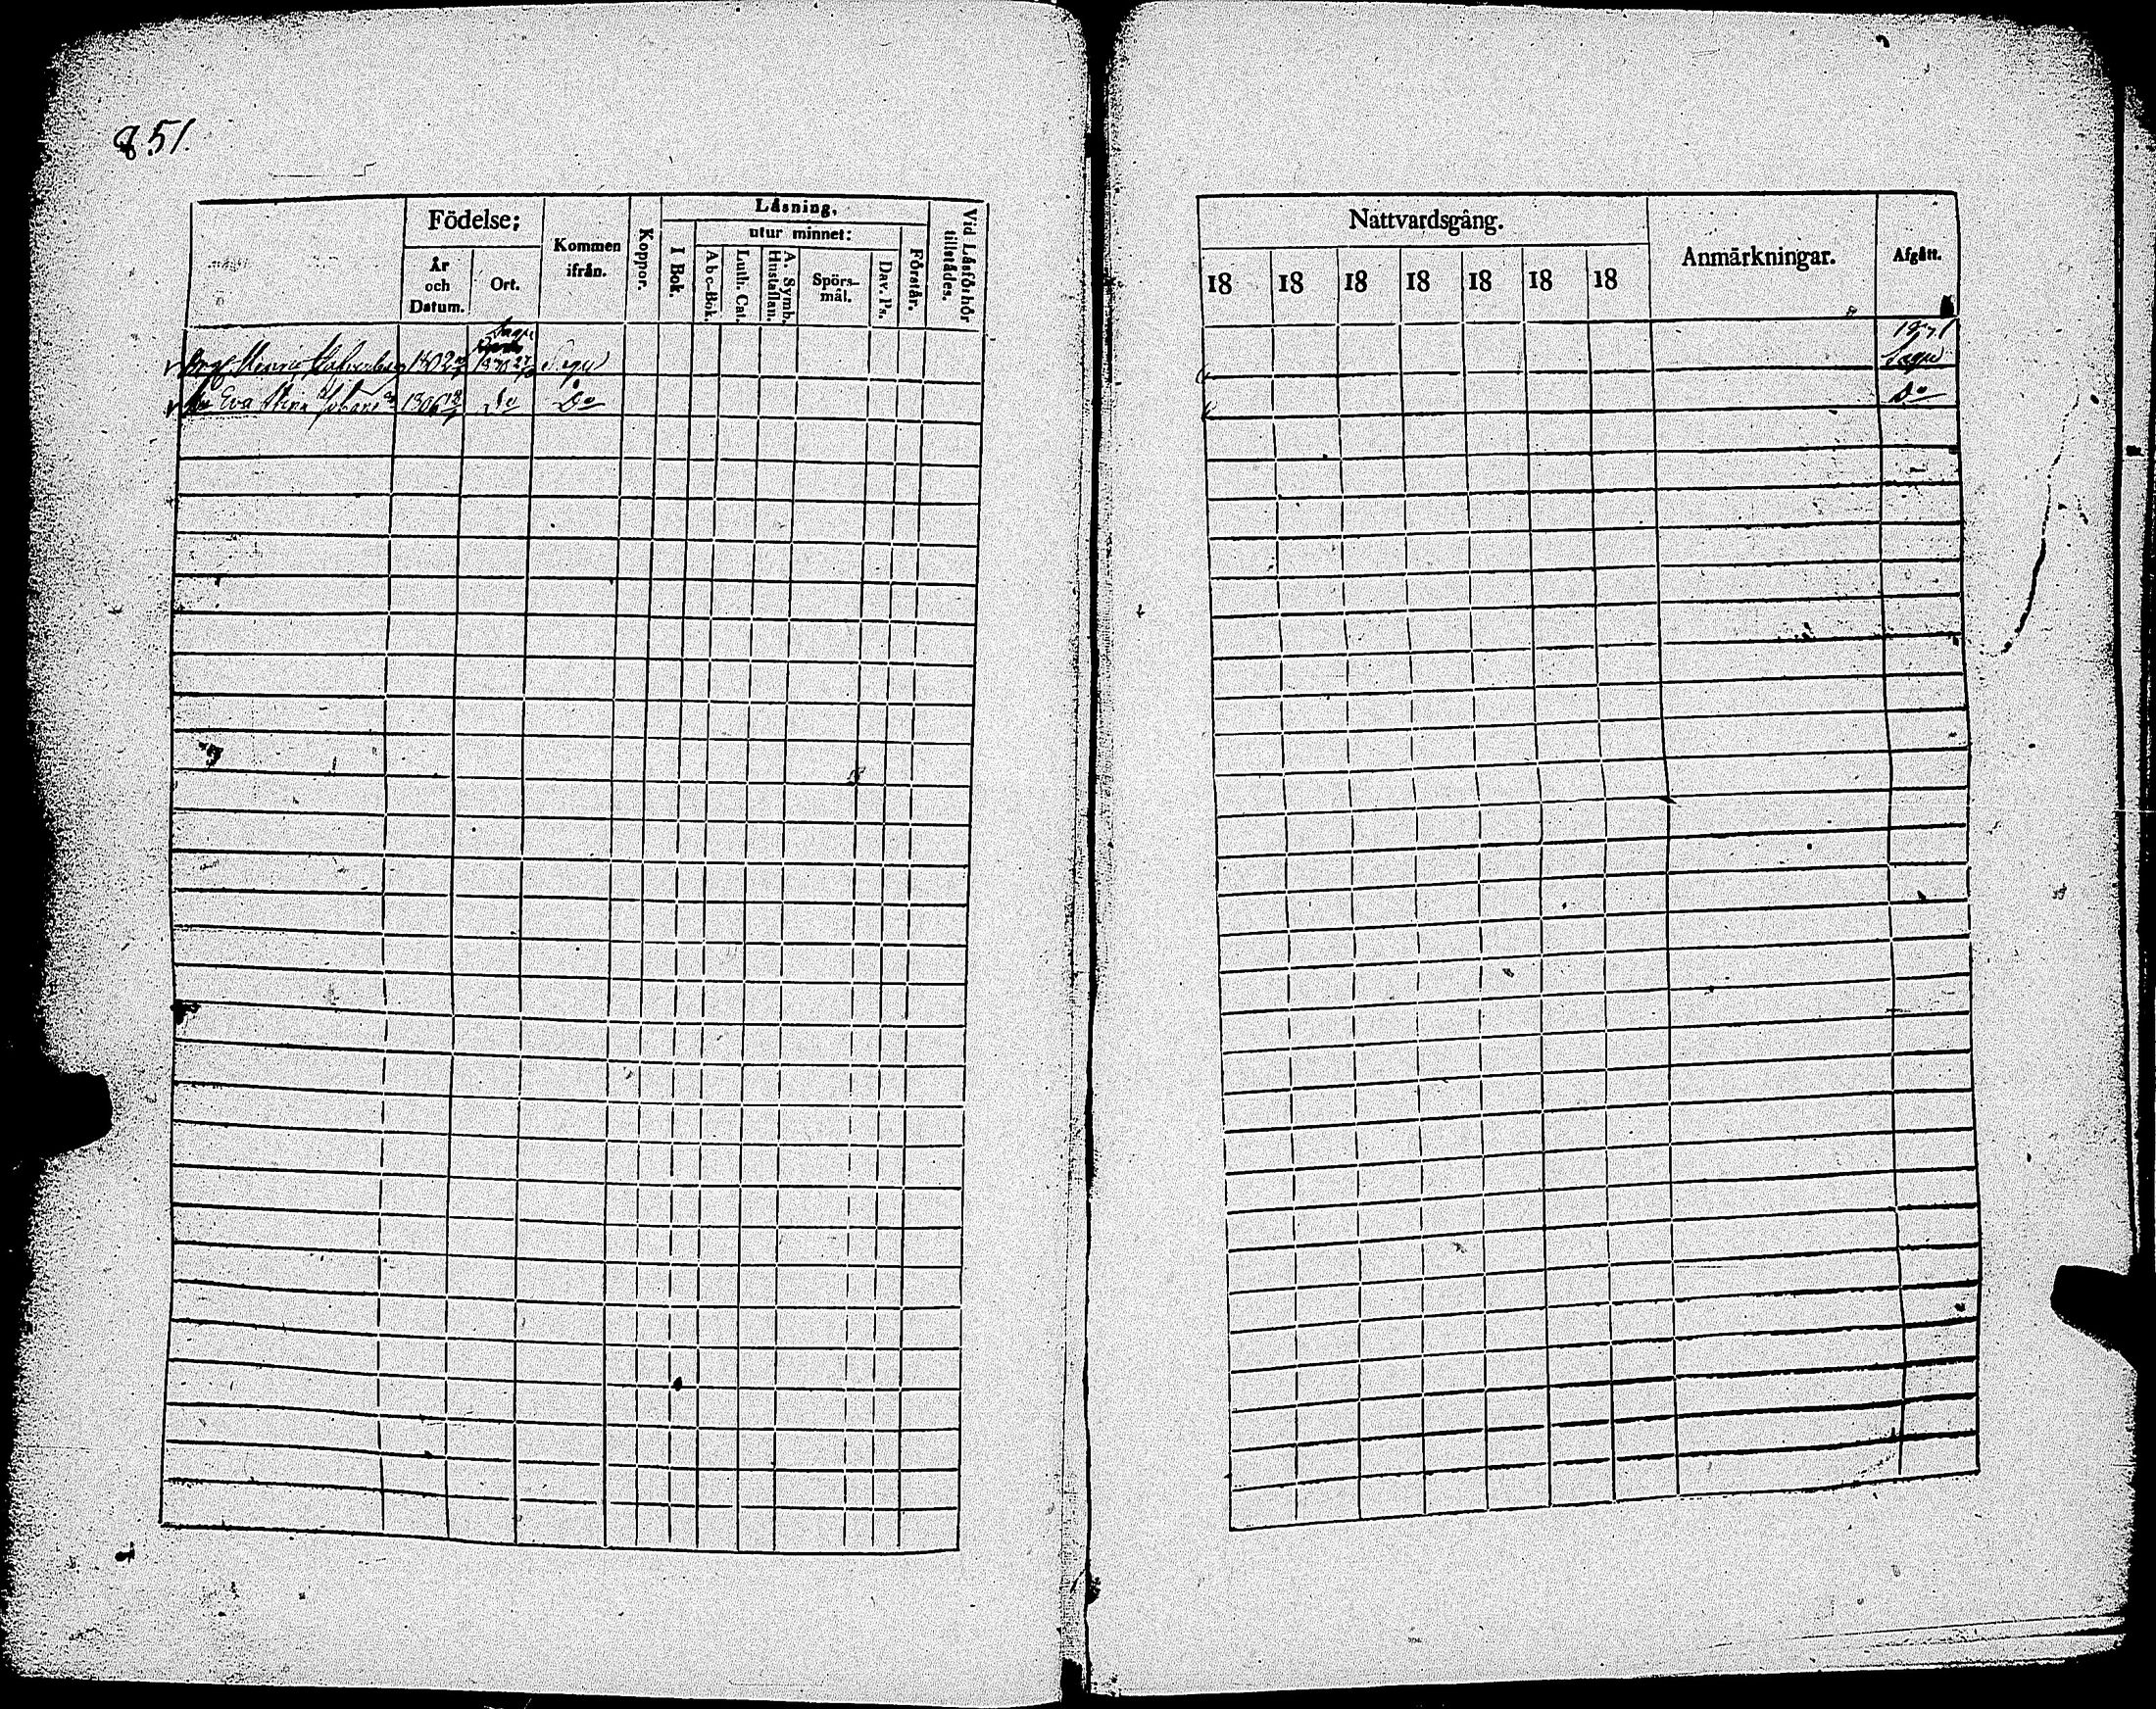 851.
Födelse;
År och Datum.
Ort.
Kommen ifrån.
Koppor.
Låsning,
I Bok.
utur minnet:
Abc-Bok.
Luth. Cat.
A. Symb. Hustaflan.
Spörs-mål.
Dav. Ps.
Förstår.
Vid Låsförhör tillstädes.
Henric 1802 Sagu
Eva Stina 1806 Do Do
Nattvardsgång.
18 18 18 18 18 18 18
Anmärkningar.
Afgått.
Sagu
Do